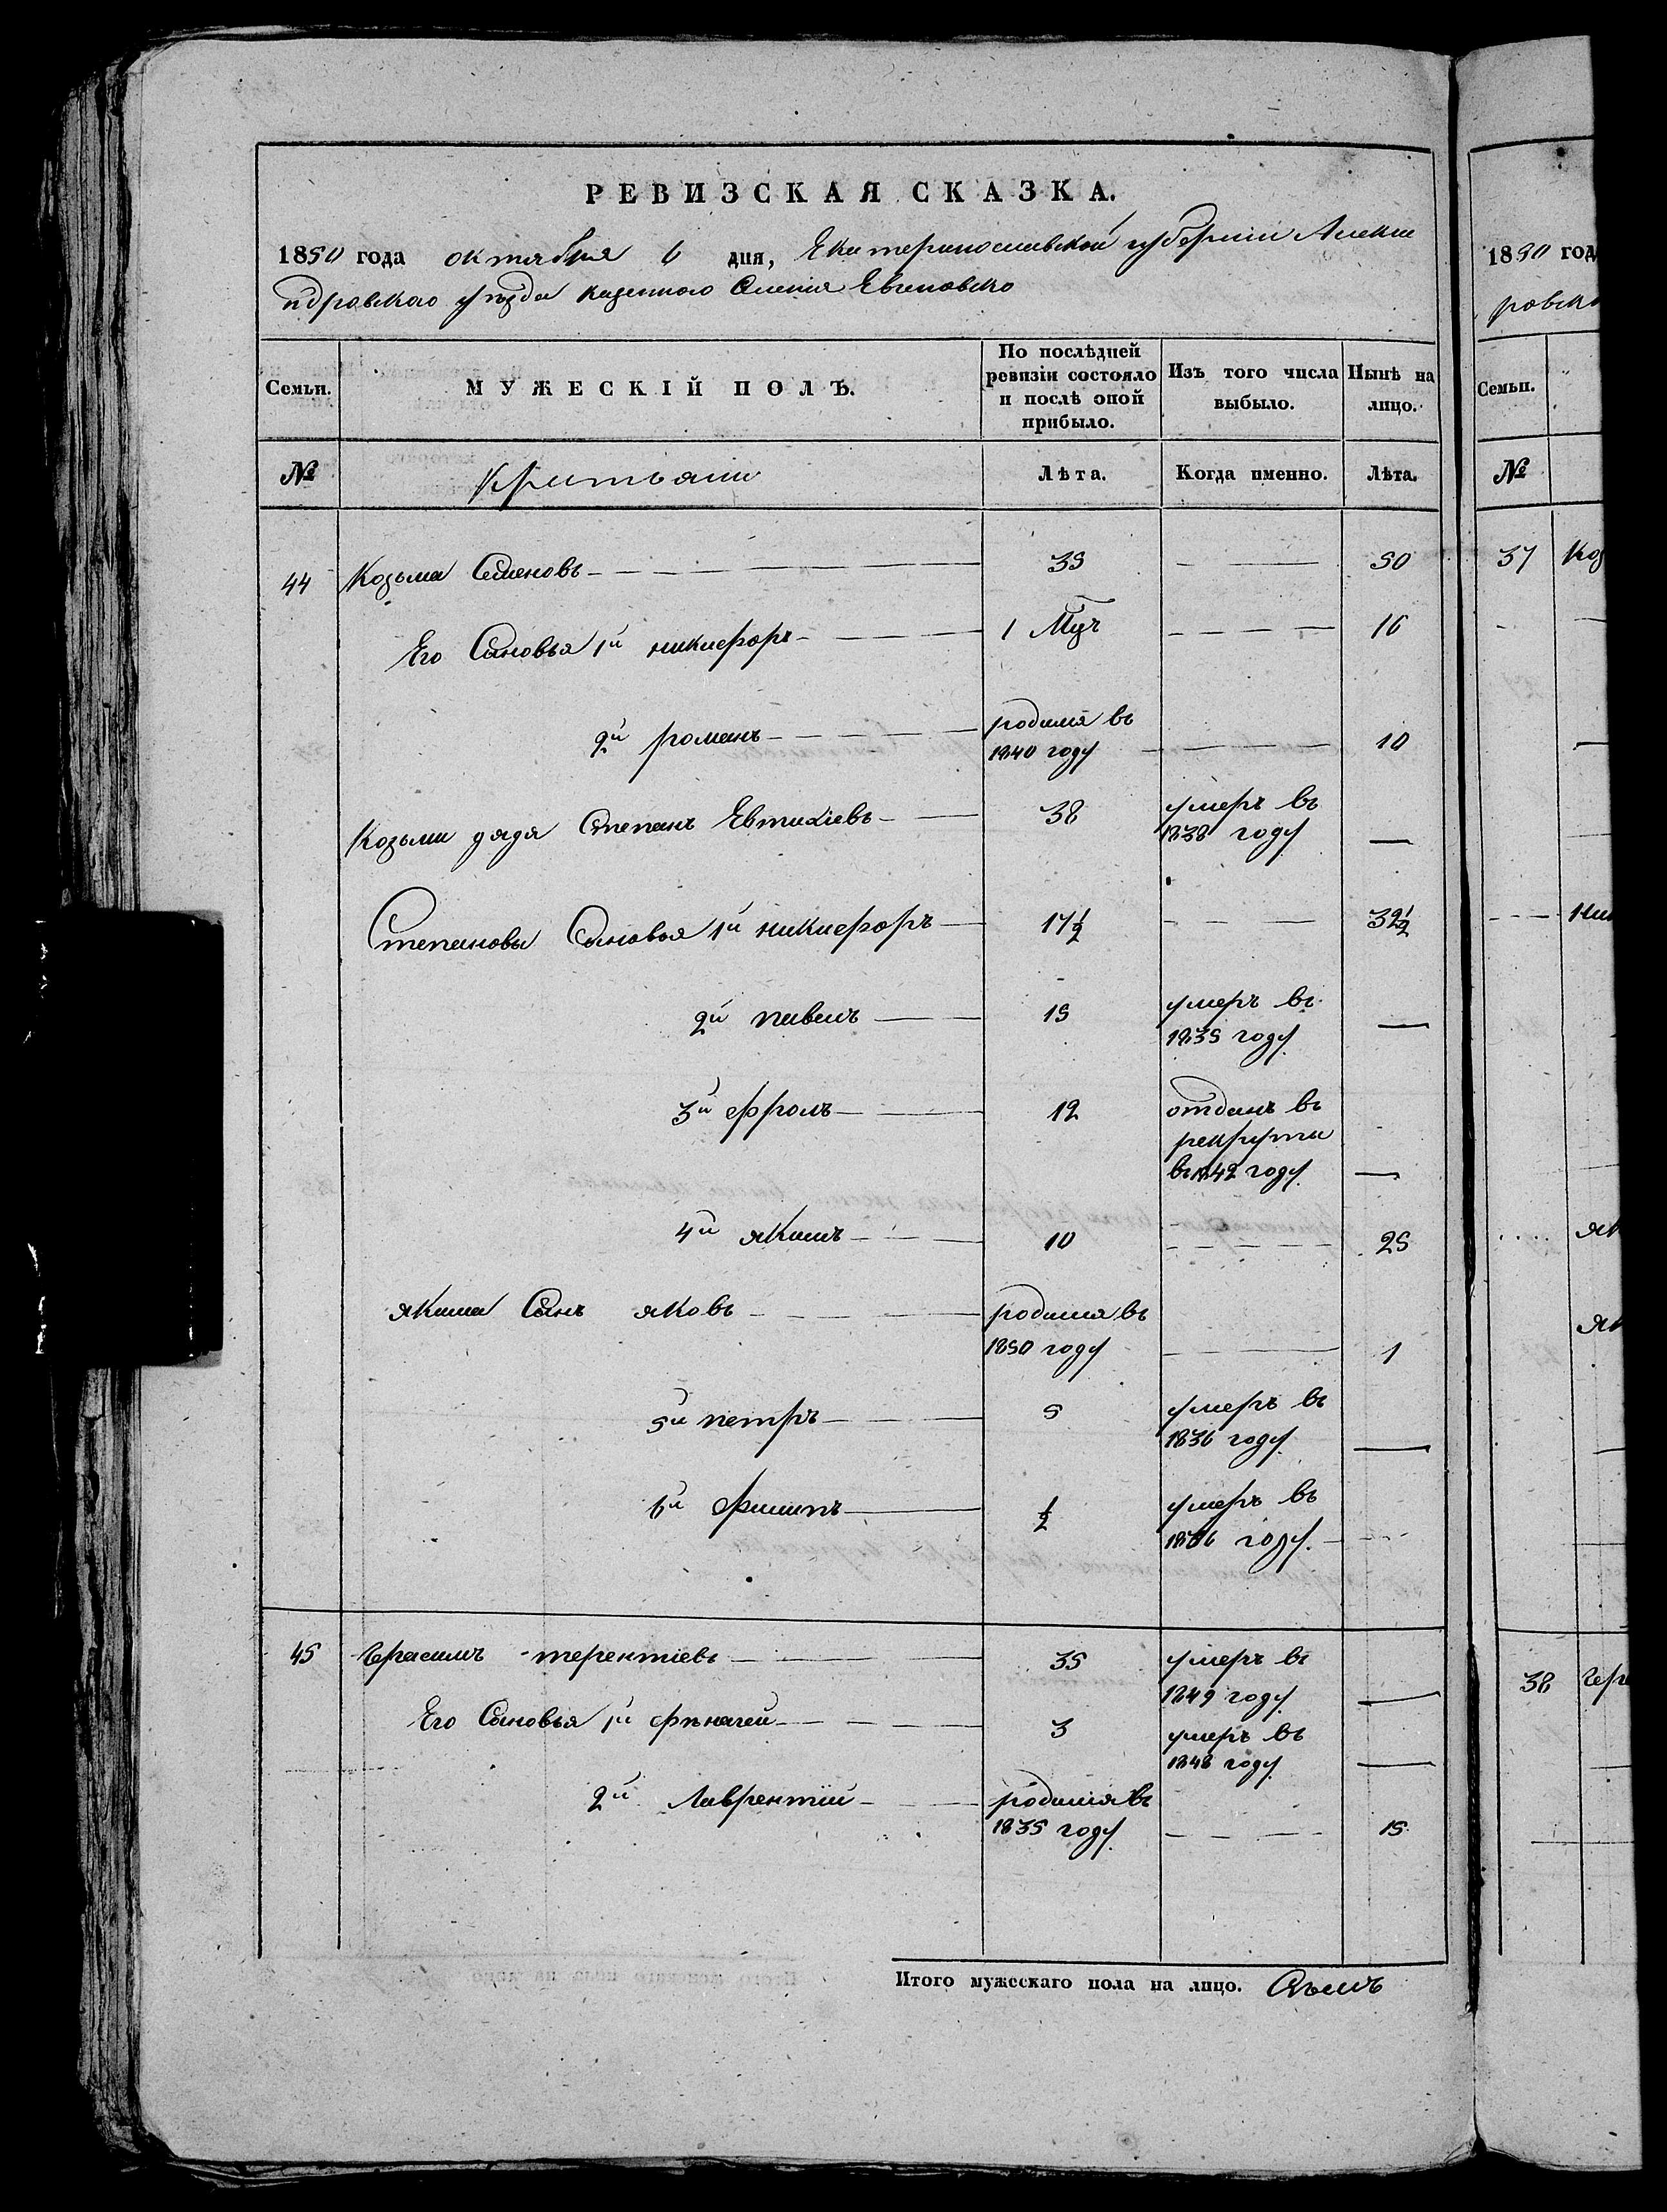 РЕВИЗСКАЯ СКАЗКА.
1850 года октября 6 дня, Екатеринославской губернии Алекса
ндровского уезда казенного Селения Евгеновско
Семьи. МУЖЕСКІЙ ПОЛЪ. По послѣдней ревизіи состояло и послѣ оной прибыло. Изъ того числа выбыло. Нынѣ на лицо.
№ Крестьяни Лѣта. Когда именно. Лѣта.
44 Козьма Семеновъ 35 50
Его Сыновья 1й никифоръ 1 Мцъ 16
2й романъ родился въ 1840 году 10
Козьми дядя Степанъ Евтихіевъ 38 умеръ въ 1838 году
Степановы Сыновья 1й никифоръ 17½ 32½
2й павелъ 15 умеръ въ 1835 году
3й фролъ 12 отданъ въ рекруты въ 1842 году
4й якимъ 10 25
якима Сынъ яковъ родился въ 1850 году 1
5й петръ 5 умеръ въ 1836 году
6й филипъ ½ умеръ въ 1836 году.
45 Герасимъ терентіевъ 35 умеръ въ 1849 году
Его Сыновья 1й 3 умеръ въ 1848 году
2й Лаврентій родился въ 1835 году 15
Итого мужескаго пола на лицо.
1850 год
ровска
Семьи.
№
37 Коз
ник
як
як
38 Гер